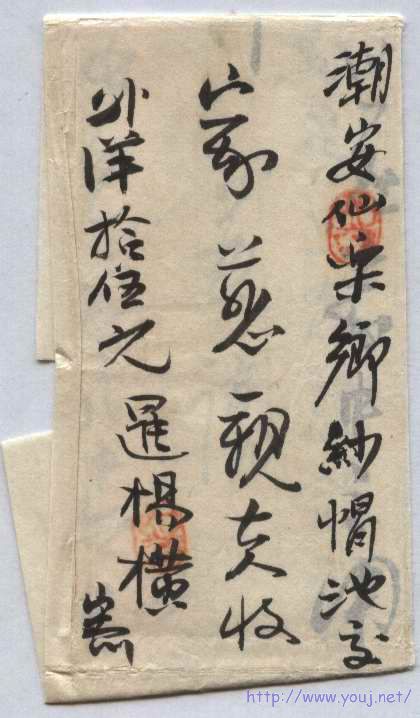 潮安仙樂鄉紗帽池交
家慈親大人收
外洋拾伍元 暹楊橫
http://www.youj.net/